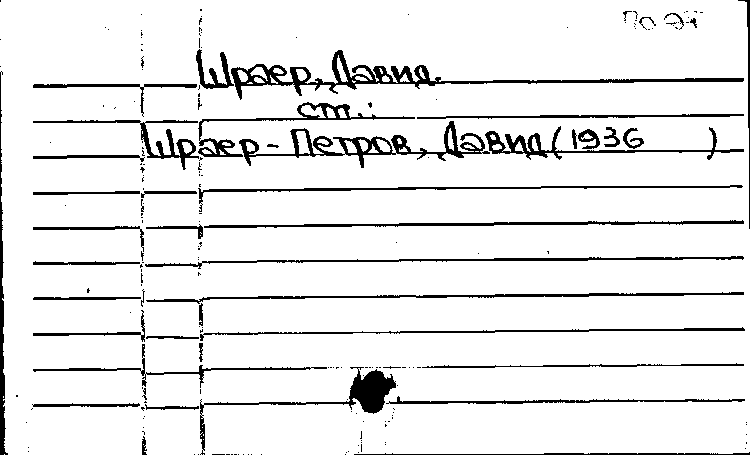 Шраер, Давид.
ст.:
Шраер-Петров, Давид (1936 )